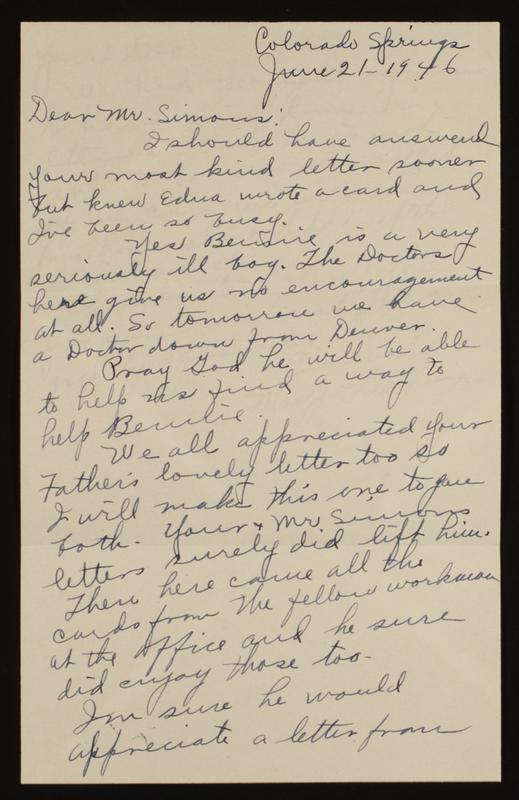 Colorado Springs
June 21 - 1946
Dear Mr. Simons:
I should have answered
your most kind letter sooner
but knew Edna wrote a card and
I've been so busy.
Yes Bennie is a very
seriously ill boy. The Doctors
here give us no encouragement
at all. So tomorrow we have
a Doctor down from Denver.
Pray God he will be able
to help us find a way to
help Bennie.
We all appreciated your
Father's lovely letter too so
I will make this one to you
both. Your & Mr. Simons
letters surely did lift him.
Then here came all the
cards from the fellow workmen
at the Office and he sure
did enjoy those too -
I'm sure he would
appreciate a letter from